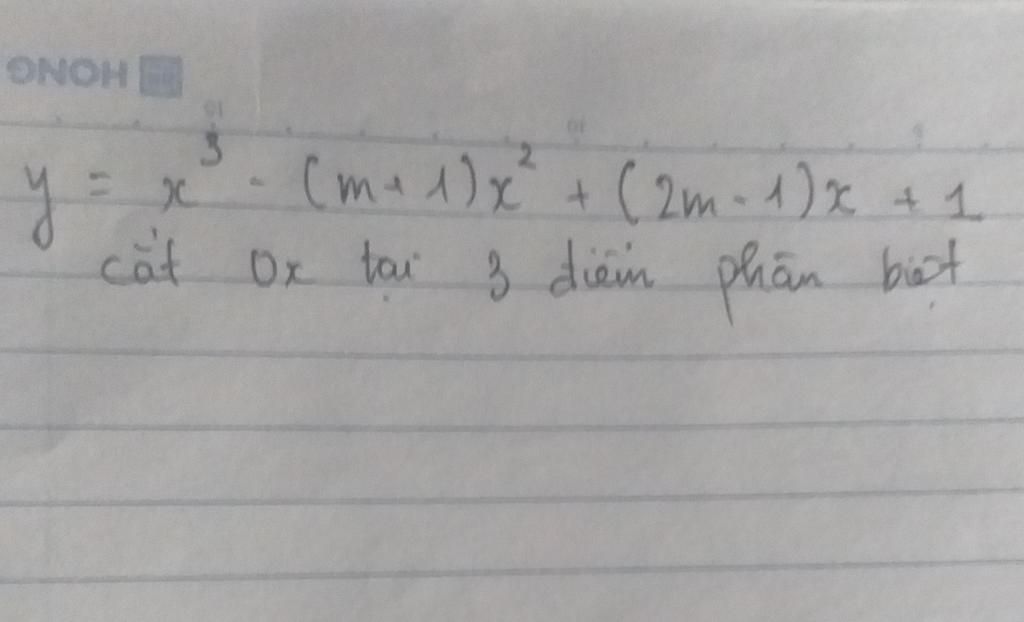 HONG
y = x³ - (m+1)x² + (2m-1)x + 1
cắt Ox tại 3 điểm phân biệt